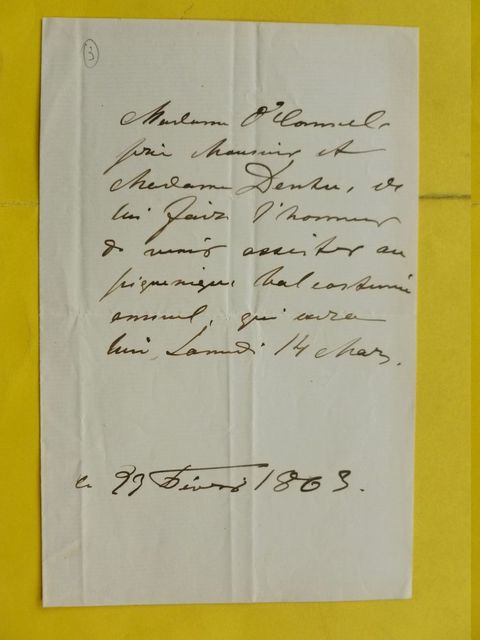 3
Madame O'Connell
prie Monsieur et
Madame Dentu, de
lui faire l'honneur
de venir assister au
piquenique, bal costumé
annuel, qui aura
lieu, Samedi 14 Mars.
le Février 1863.